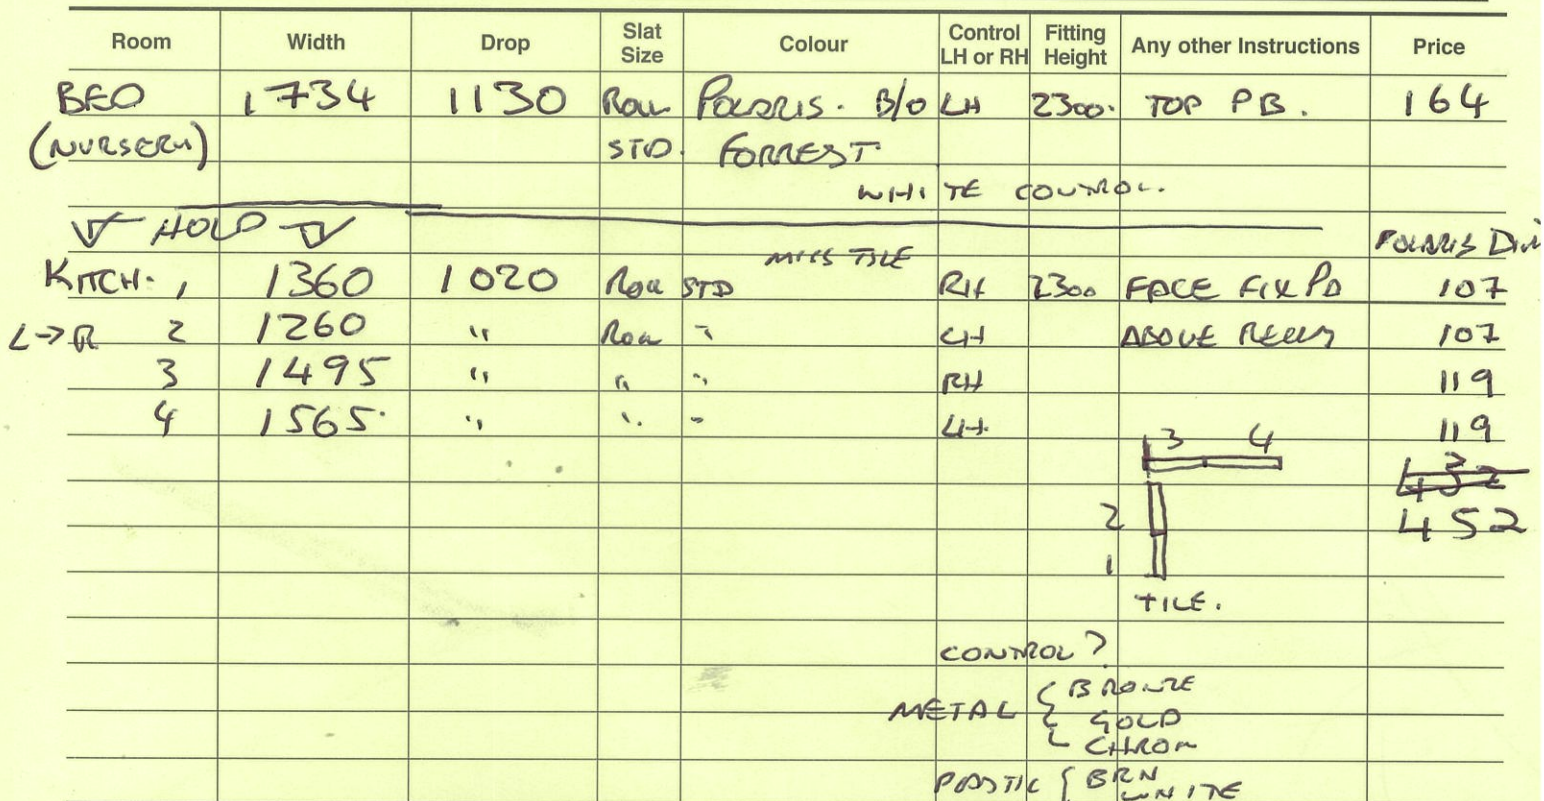 Room Width Drop Slat Size Colour Control LH or RH Fitting Height Any other Instructions Price
BED 1734 1130 Roll POLARIS. B/O LH 2300. TOP PB. 164
(NURSERY) STD. FORREST
WHITE CONTROL.
HOLD
POLARIS Dim
TILE
KITCH. 1 1360 1020 Roll STD RH 2300 FACE FIX PB 107
L→R 2 1260 " Roll " LH ABOVE 107
3 1495 " " " RH 119
4 1565 " " " LH 119
3 4
432
2 452
1
TILE.
CONTROL?
METAL { BRONZE
GOLD
CHROM
PLASTIC { BRN
WHITE